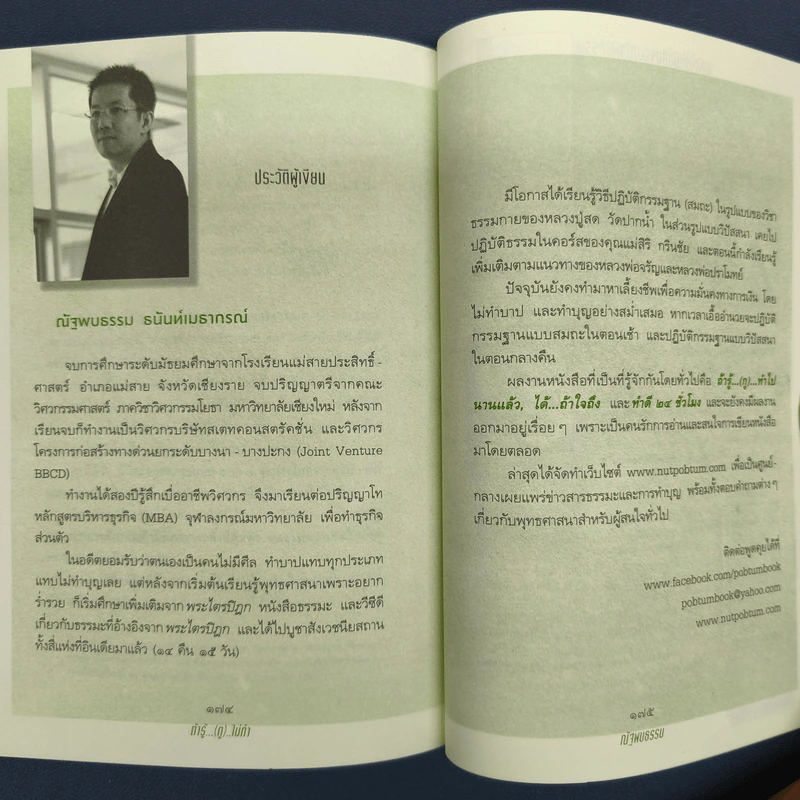 ประวัติผู้เขียน
ณัฐพบธรรม ธนันท์เมธาภรณ์
จบการศึกษาระดับมัธยมศึกษาจากโรงเรียนแม่สายประสิทธิ์ -
ศาสตร์ อำเภอแม่สาย จังหวัดเชียงราย จบปริญญาตรีจากคณะ
วิศวกรรมศาสตร์ ภาควิชาวิศวกรรมโยธา มหาวิทยาลัยเชียงใหม่ หลังจาก
เรียนจบก็ทำงานเป็นวิศวกรบริษัทสเตทคอนสตรัคชั่น และวิศวกร
โครงการก่อสร้างทางด่วนยกระดับบางนา - บางปะกง (Joint Venture
BBCD)
ทำงานได้สองปีรู้สึกเบื่ออาชีพวิศวกร จึงมาเรียนต่อปริญญาโท
หลักสูตรบริหารธุรกิจ (MBA) จุฬาลงกรณ์มหาวิทยาลัย เพื่อทำธุรกิจ
ส่วนตัว
ในอดีตยอมรับว่าตนเองเป็นคนไม่มีศีล ทำบาปแทบทุกประเภท
แทบไม่ทำบุญเลย แต่หลังจากเริ่มต้นเรียนรู้พุทธศาสนาเพราะอยาก
ร่ำรวย ก็เริ่มศึกษาเพิ่มเติมจาก พระไตรปิฎก หนังสือธรรมะ และวีซีดี
เกี่ยวกับธรรมะที่อ้างอิงจาก พระไตรปิฎก และได้ไปบูชาสังเวชนียสถาน
ทั้งสี่แห่งที่อินเดียมาแล้ว (๑๔ คืน ๑๕ วัน)
๑๗๔
ถ้ารู้...(กู)..ไม่ทำ
มีโอกาสได้เรียนรู้วิธีปฏิบัติกรรมฐาน (สมถะ) ในรูปแบบของวิชา
ธรรมกายของหลวงปู่สด วัดปากน้ำ ในส่วนรูปแบบวิปัสสนา เคยไป
ปฏิบัติธรรมในคอร์สของคุณแม่สิริ กรินชัย และตอนนี้กำลังเรียนรู้
เพิ่มเติมตามแนวทางของหลวงพ่อจรัญและหลวงพ่อปราโมทย์
ปัจจุบันยังคงทำมาหาเลี้ยงชีพเพื่อความมั่นคงทางการเงิน โดย
ไม่ทำบาป และทำบุญอย่างสม่ำเสมอ หากเวลาเอื้ออำนวยจะปฏิบัติ
กรรมฐานแบบสมถะในตอนเช้า และปฏิบัติกรรมฐานแบบวิปัสสนา
ในตอนกลางคืน
ผลงานหนังสือที่เป็นที่รู้จักกันโดยทั่วไปคือ ถ้ารู้...(กู)...ทำไป
นานแล้ว, ได้...ถ้าใจถึง และทำดี ๒๔ ชั่วโมง และจะยังคงมีผลงาน
ออกมาอยู่เรื่อย ๆ เพราะเป็นคนรักการอ่านและสนใจการเขียนหนังสือ
มาโดยตลอด
ล่าสุดได้จัดทำเว็บไซต์ www.nutpobtum.com เพื่อเป็นศูนย์-
กลางเผยแพร่ข่าวสารธรรมะและการทำบุญ พร้อมทั้งตอบคำถามต่าง ๆ
เกี่ยวกับพุทธศาสนาสำหรับผู้สนใจทั่วไป
ติดต่อพูดคุยได้ที่
www.facebook.com/pobtumbook
pobtumbook@yahoo.com
www.nutpobtum.com
๑๗๕
ณัฐพบธรรม